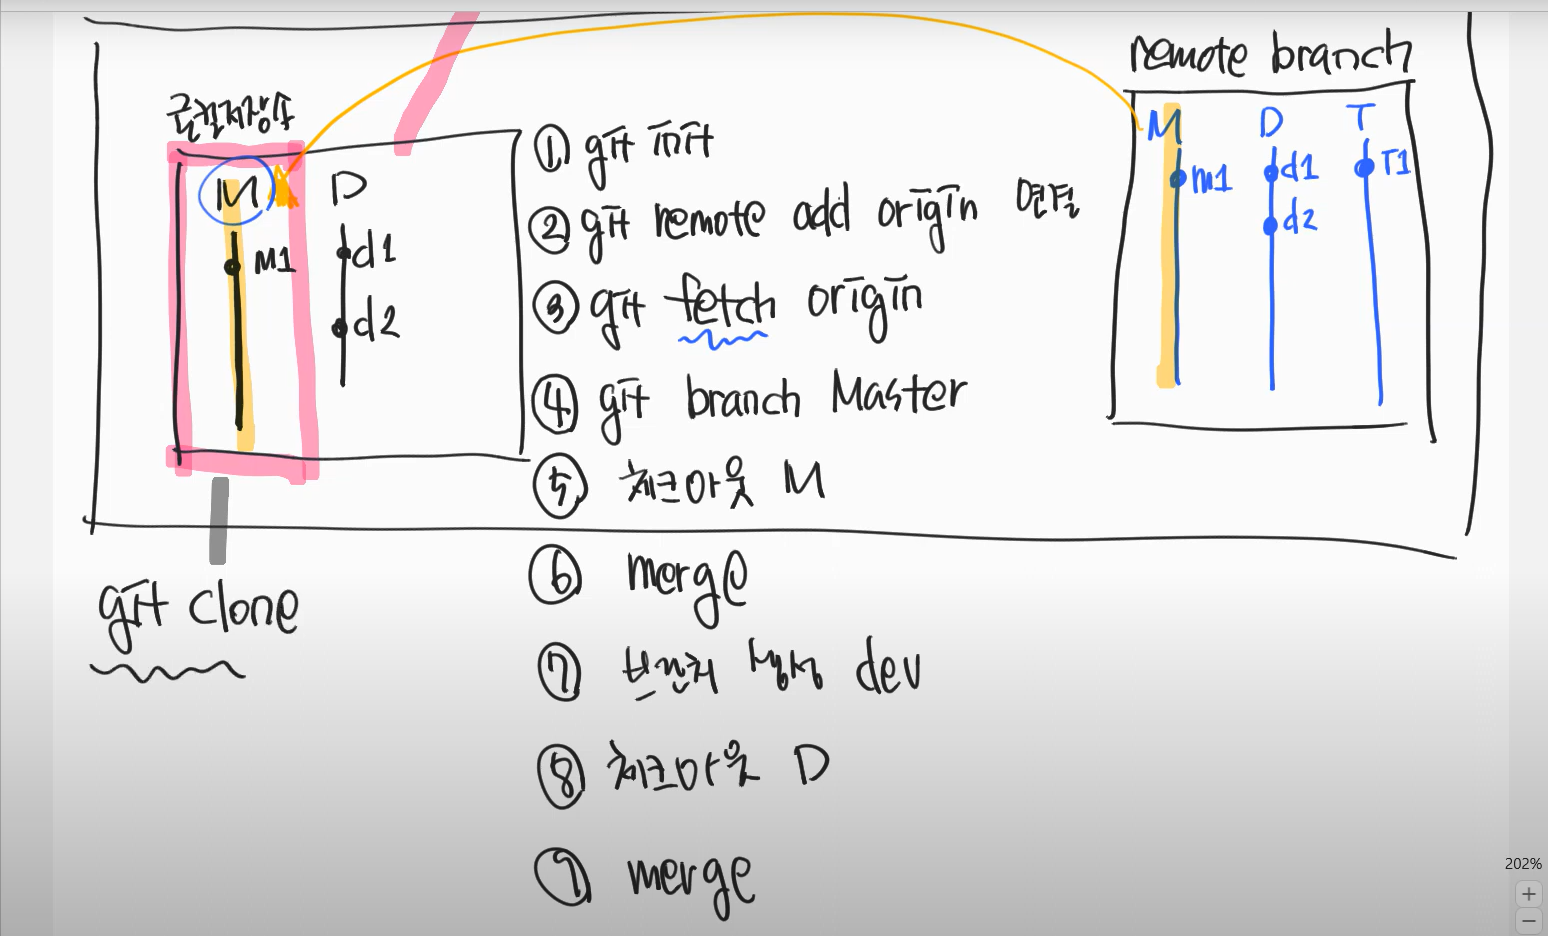 remote branch
로컬저장소
M D
M1
d1
d2
① git init
② git remote add origin 연결
③ git fetch origin
④ git branch Master
⑤ 체크아웃 M
⑥ merge
⑦ 브랜치 생성 dev
⑧ 체크아웃 D
⑨ merge
M D T
m1 d1 T1
d2
git clone
202%
+
−